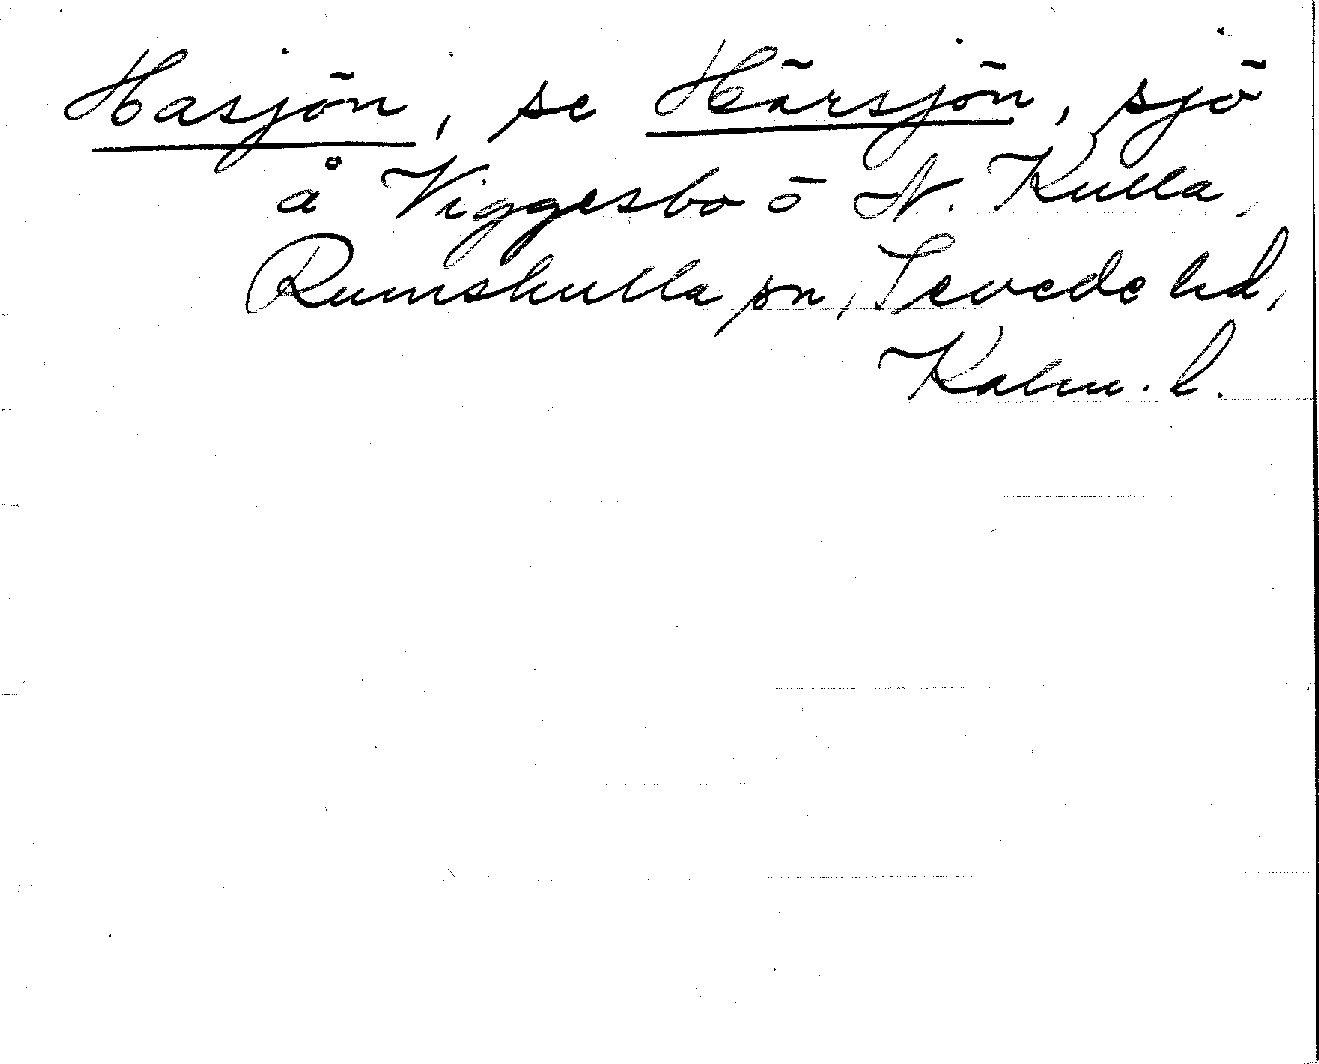 Hasjön, se Härsjön, sjö
å Viggesbo o N. Kulla,
Rumskulla sn, Sevede hd,
Kalm. l.